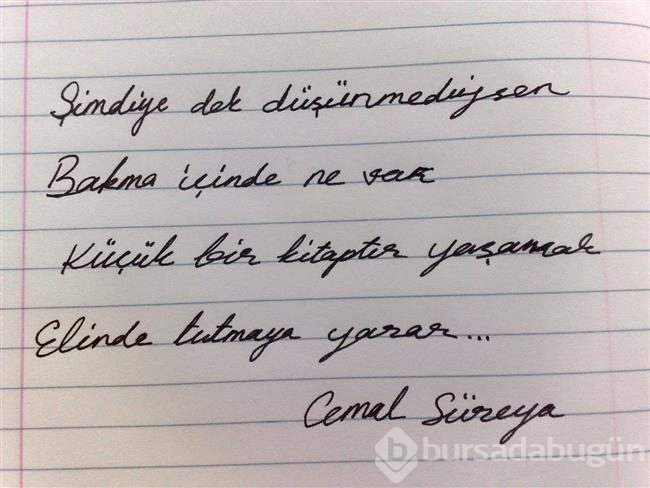 Şimdiye dek düşünmediysen
Bakma içinde ne var
Küçük bir kitaptır yaşamak
Elinde tutmaya yarar...
Cemal Süreya
bursadabugün